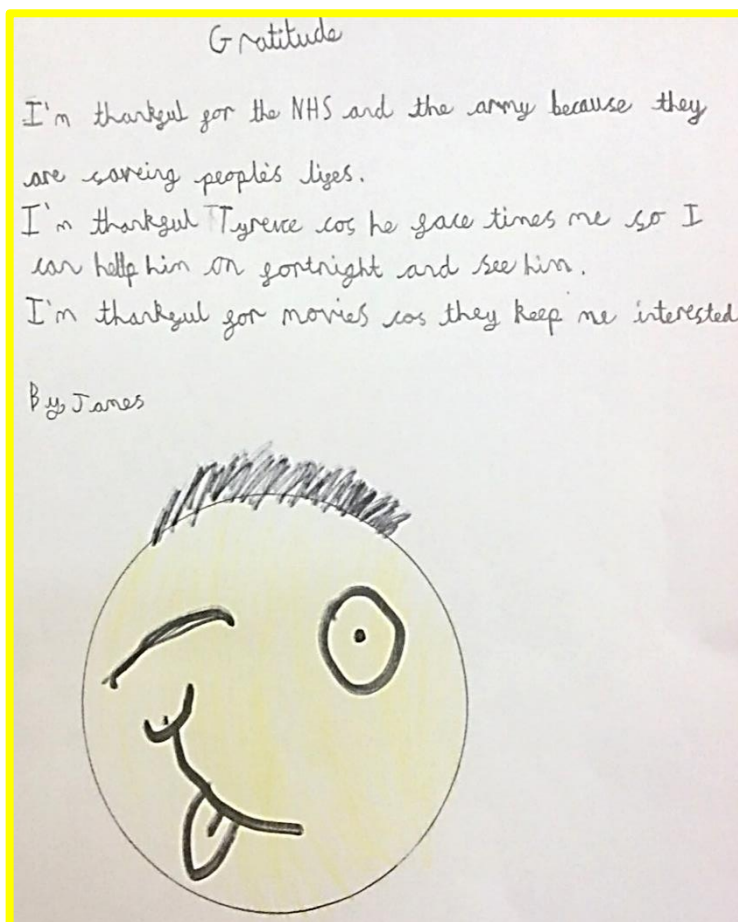 Gratitude
I'm thankful for the NHS and the army because they
are saveing people's lifes.
I'm thankful Tyrece cos he face times me so I
can hellp him on fortnight and see him.
I'm thankful for movies cos they keep me interested
By James